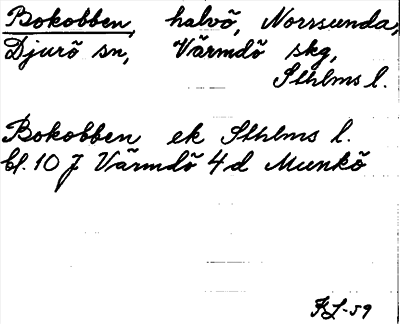 Bokobben, halvö, Norrsunda,
Djurö sn, Värmdö skg,
Sthlms l.
Bokobben ek Sthlms l.
bl. 10 J Värmdö 4d Munkö
KL-59